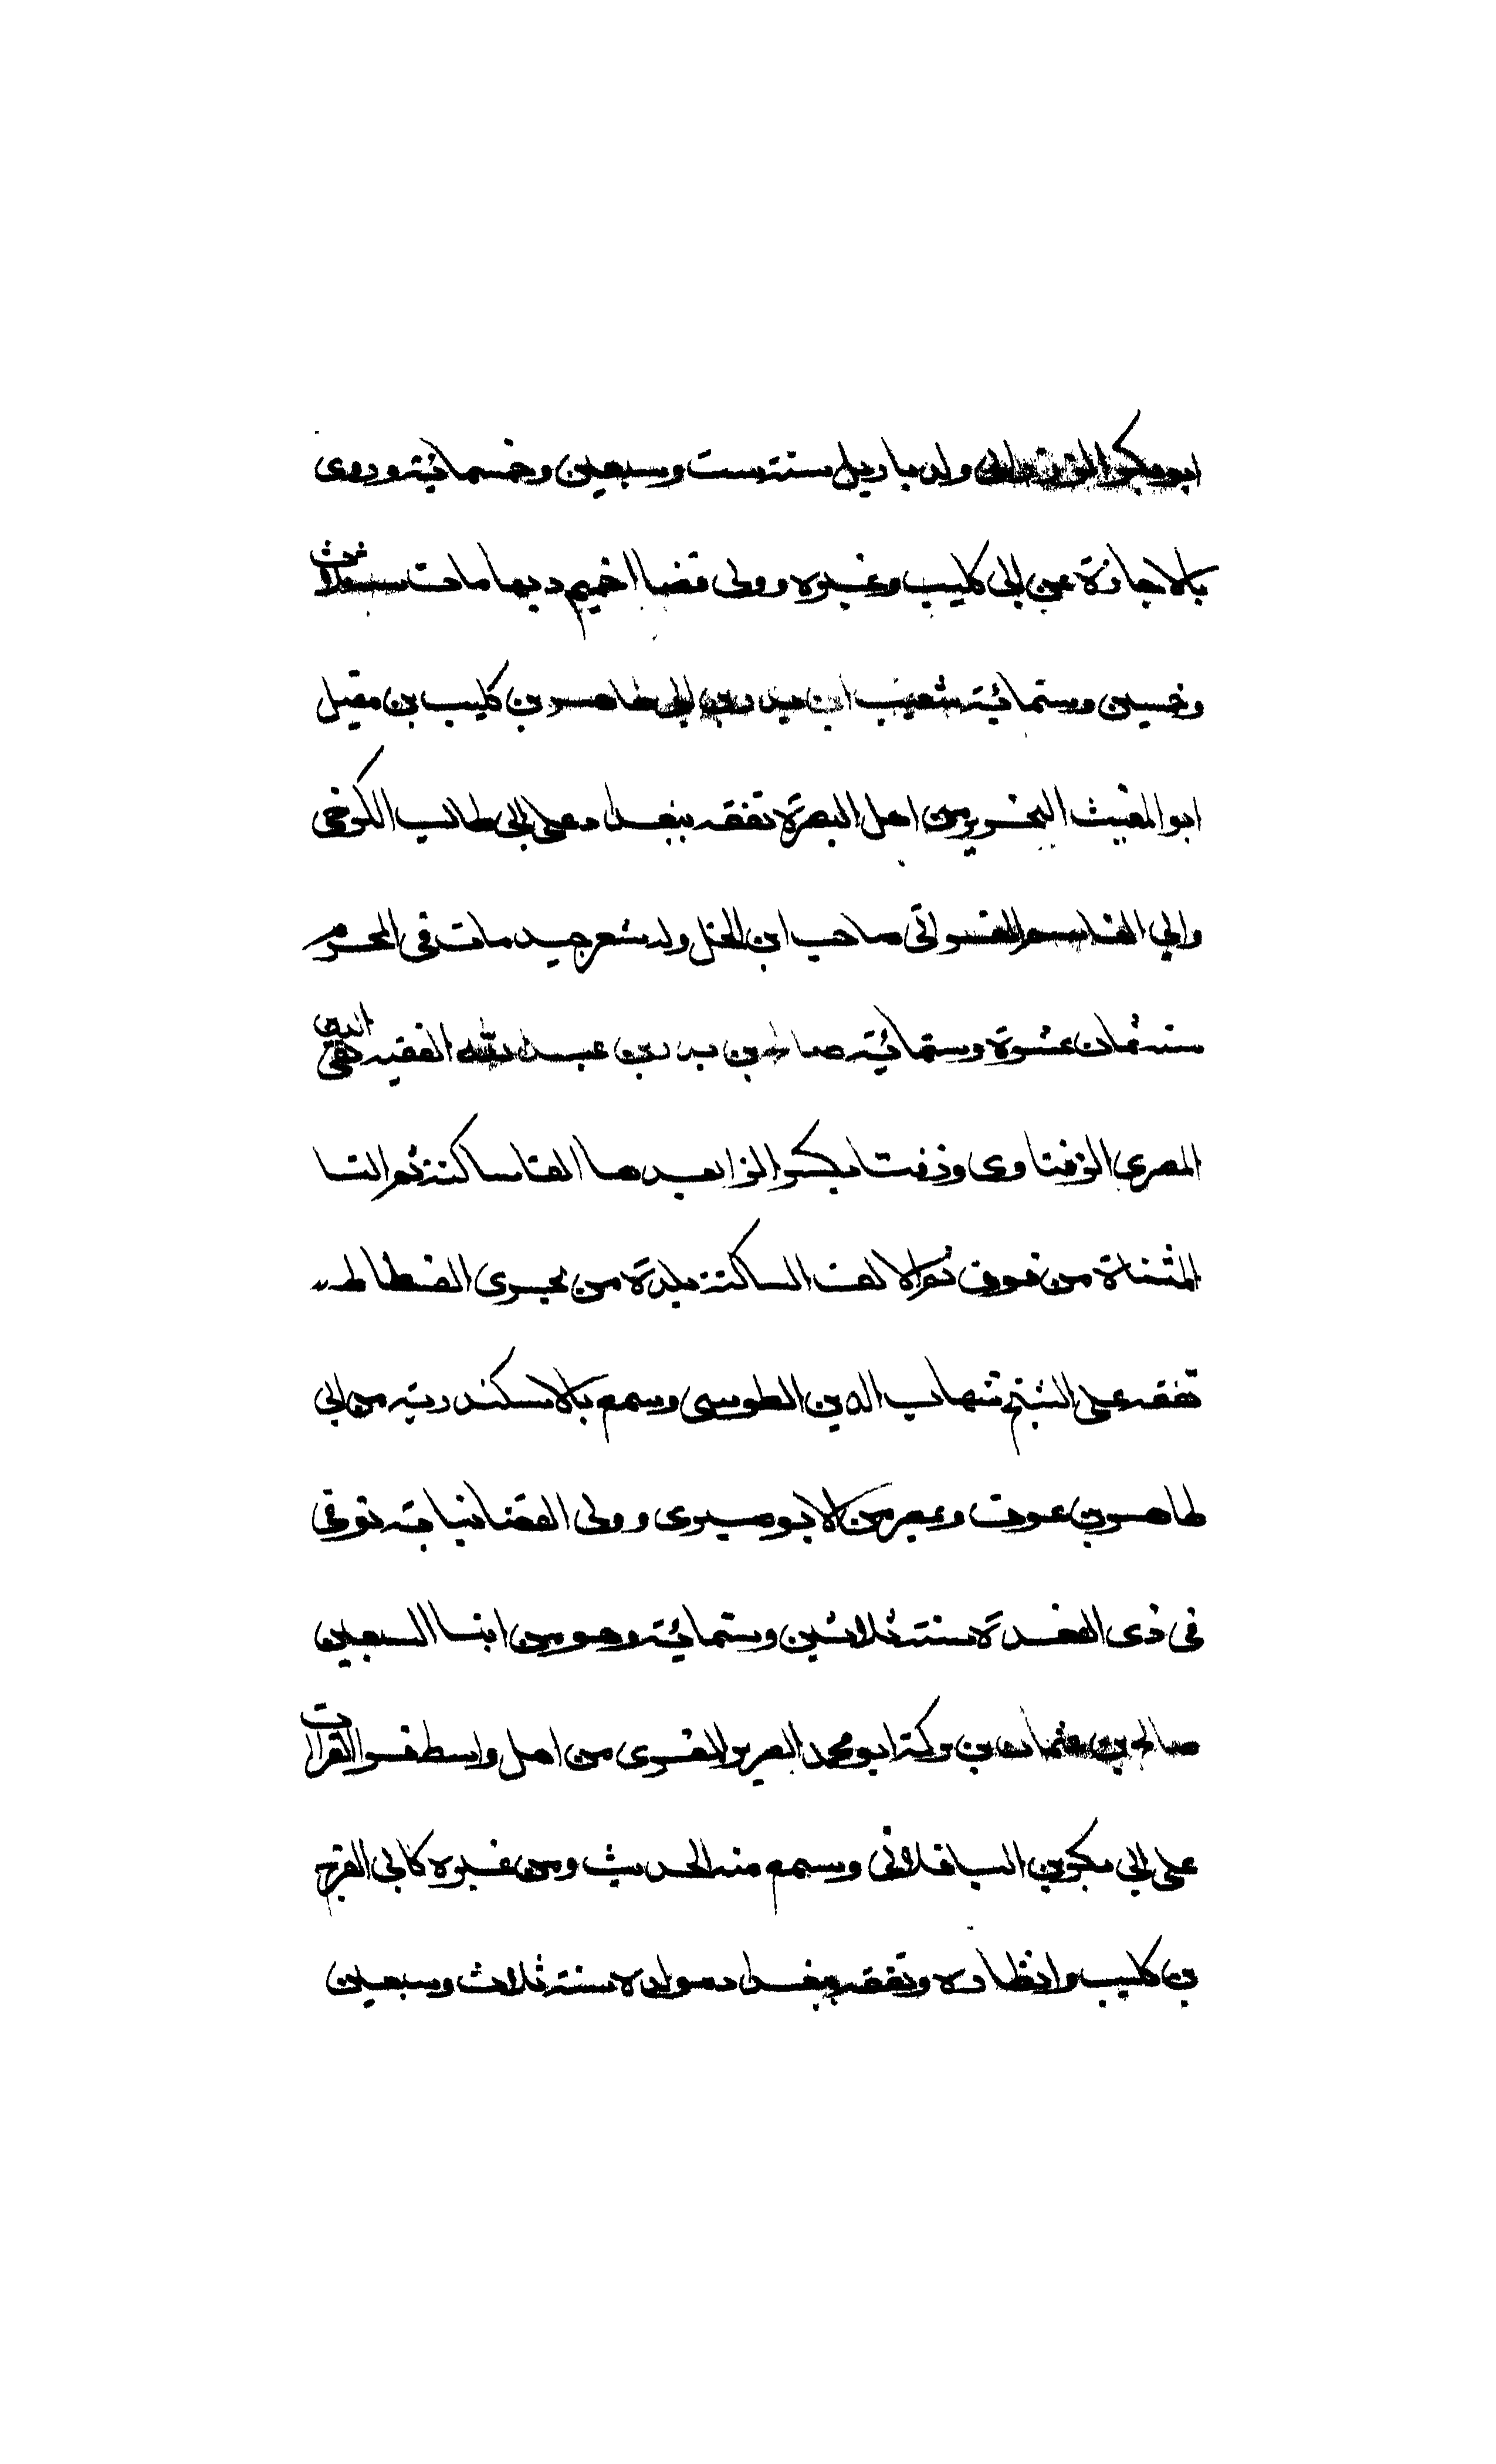 ابو بكر الزرزاري ولد باربل سنة ست وسبعين وخمسمائية وروى
بالاجازة عن ابي كليب وغيره وولى قضا اخميم وبها مات سنة ثلاث
وخمسين وستمائية شعيب ابن بدر بن ابي طاهر بن كليب بن مقبل
ابو الغيث الضرير من اهل البصرة تفقه ببغداد على ابي طالب الكرخي
وابي القاسم الفراتي صاحب ابن الخل وله شعر جيد مات في المحرم
سنة ثمان عشرة وستمائية صالح بن بدر بن عبد الله الفقيه تقي الدين
المصري الزفتاوي وزفتا بكسر الزا بعدها الفا ساكنة ثم التا
المثناة من فوق ثم الالف الساكنة بلدة من بحرى الفسطاط
تفقه على الشيخ شهاب الدين الطوسي وسمع بالاسكندرية من ابي
طاهر بن عوف وبمصر من الابوصيري وولى القضا نيابة توفي
في ذي القعدة سنة ثلاثين وستمائية وهو من ابنا السبعين
صالح بن عثمان بن بركة ابو محمد الضرير المقري من اهل واسط قرا القرات
على ابي بكر بن الباقلاني وسمع منه الحديث ومن غيره كابي الفرج
بن كليب وانظاره وتفقه ببغداد مولده سنة ثلاث وسبعين